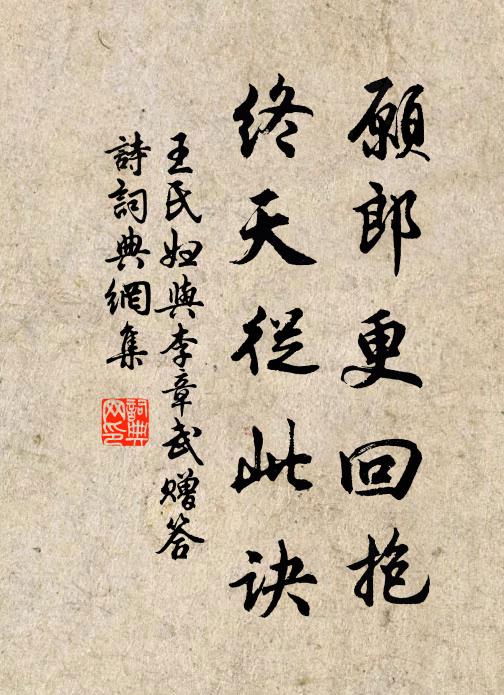 願郎更回抱
終天從此訣
王氏婦與李章武贈答
詩詞典網集
詞典网印